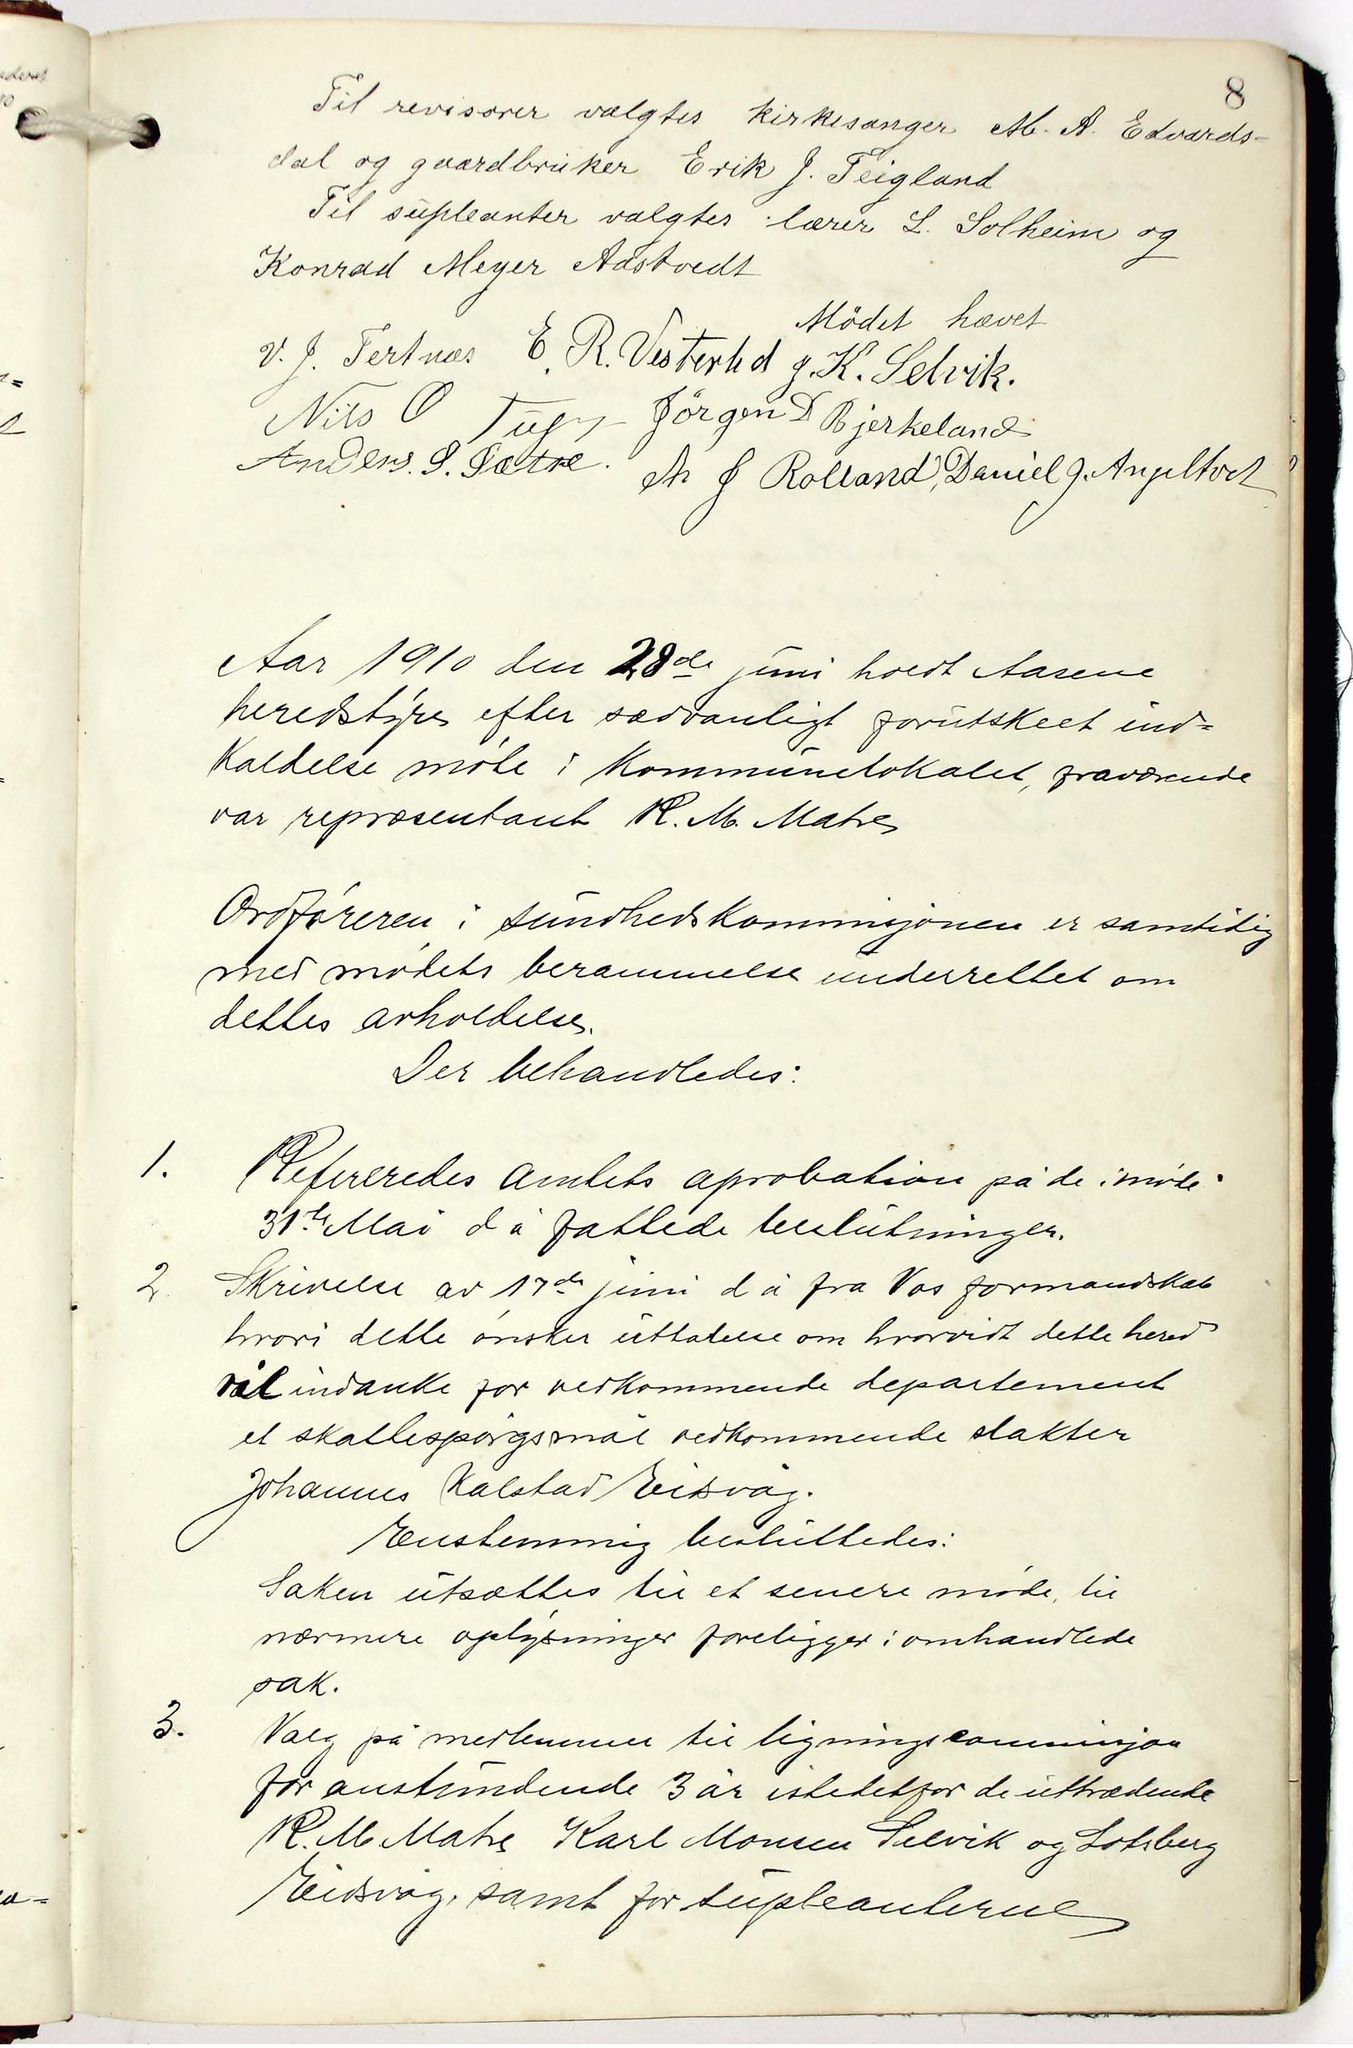 8
Til revisorer vælgtes kirkesanger M. A. Edvards-
dal og gaardbruker Erik J. Teigland
Til supleanter valgtes lærer L. Solheim og
Konrad Meyer Aastvedt
Mödet hævet
V. J. Tertnæs E. R. Vesterlid J. K. Selvik.
Nils O Jörgen D Bjerkeland
Anders. S. Sætre. A J Rolland, Daniel J. Angeltvet
Aar 1910 den 28de juni holdt Aasene
heredstyre efter sædvanligt forutskeet ind=
kaldelse møte i kommunelokalet, fraværende
var repræsentant R. M. Matre
Ordføreren i sundhedskommisjonen er samtidig
med mødets berammelse underrettet om
dettes avholdelse.
Der behandledes:
1. Refereredes amtets aprobation på de i møte
31te Mai d å fattede beslutninger.
2. Skrivelse av 17de juni d å fra Vos formandskab
hvori dette ønsker uttalelse om hvorvidt dette hered
vil indanke for vedkommende departement
et skattespørgsmål vedkommende slakter
Johannes Kalstad Eidsvåg.
Enstemmig besluttedes:
Saken utsættes til et senere møde, til
nærmere oplysninger foreligger i omhandlede
sak.
3. Valg på medlemmer til ligningscommisjon
for anstundende 3 år istedetfor de uttrædende
R. M. Matre Karl Monsen Selvik og Lotsberg
Eidsvåg, samt for supleanterne